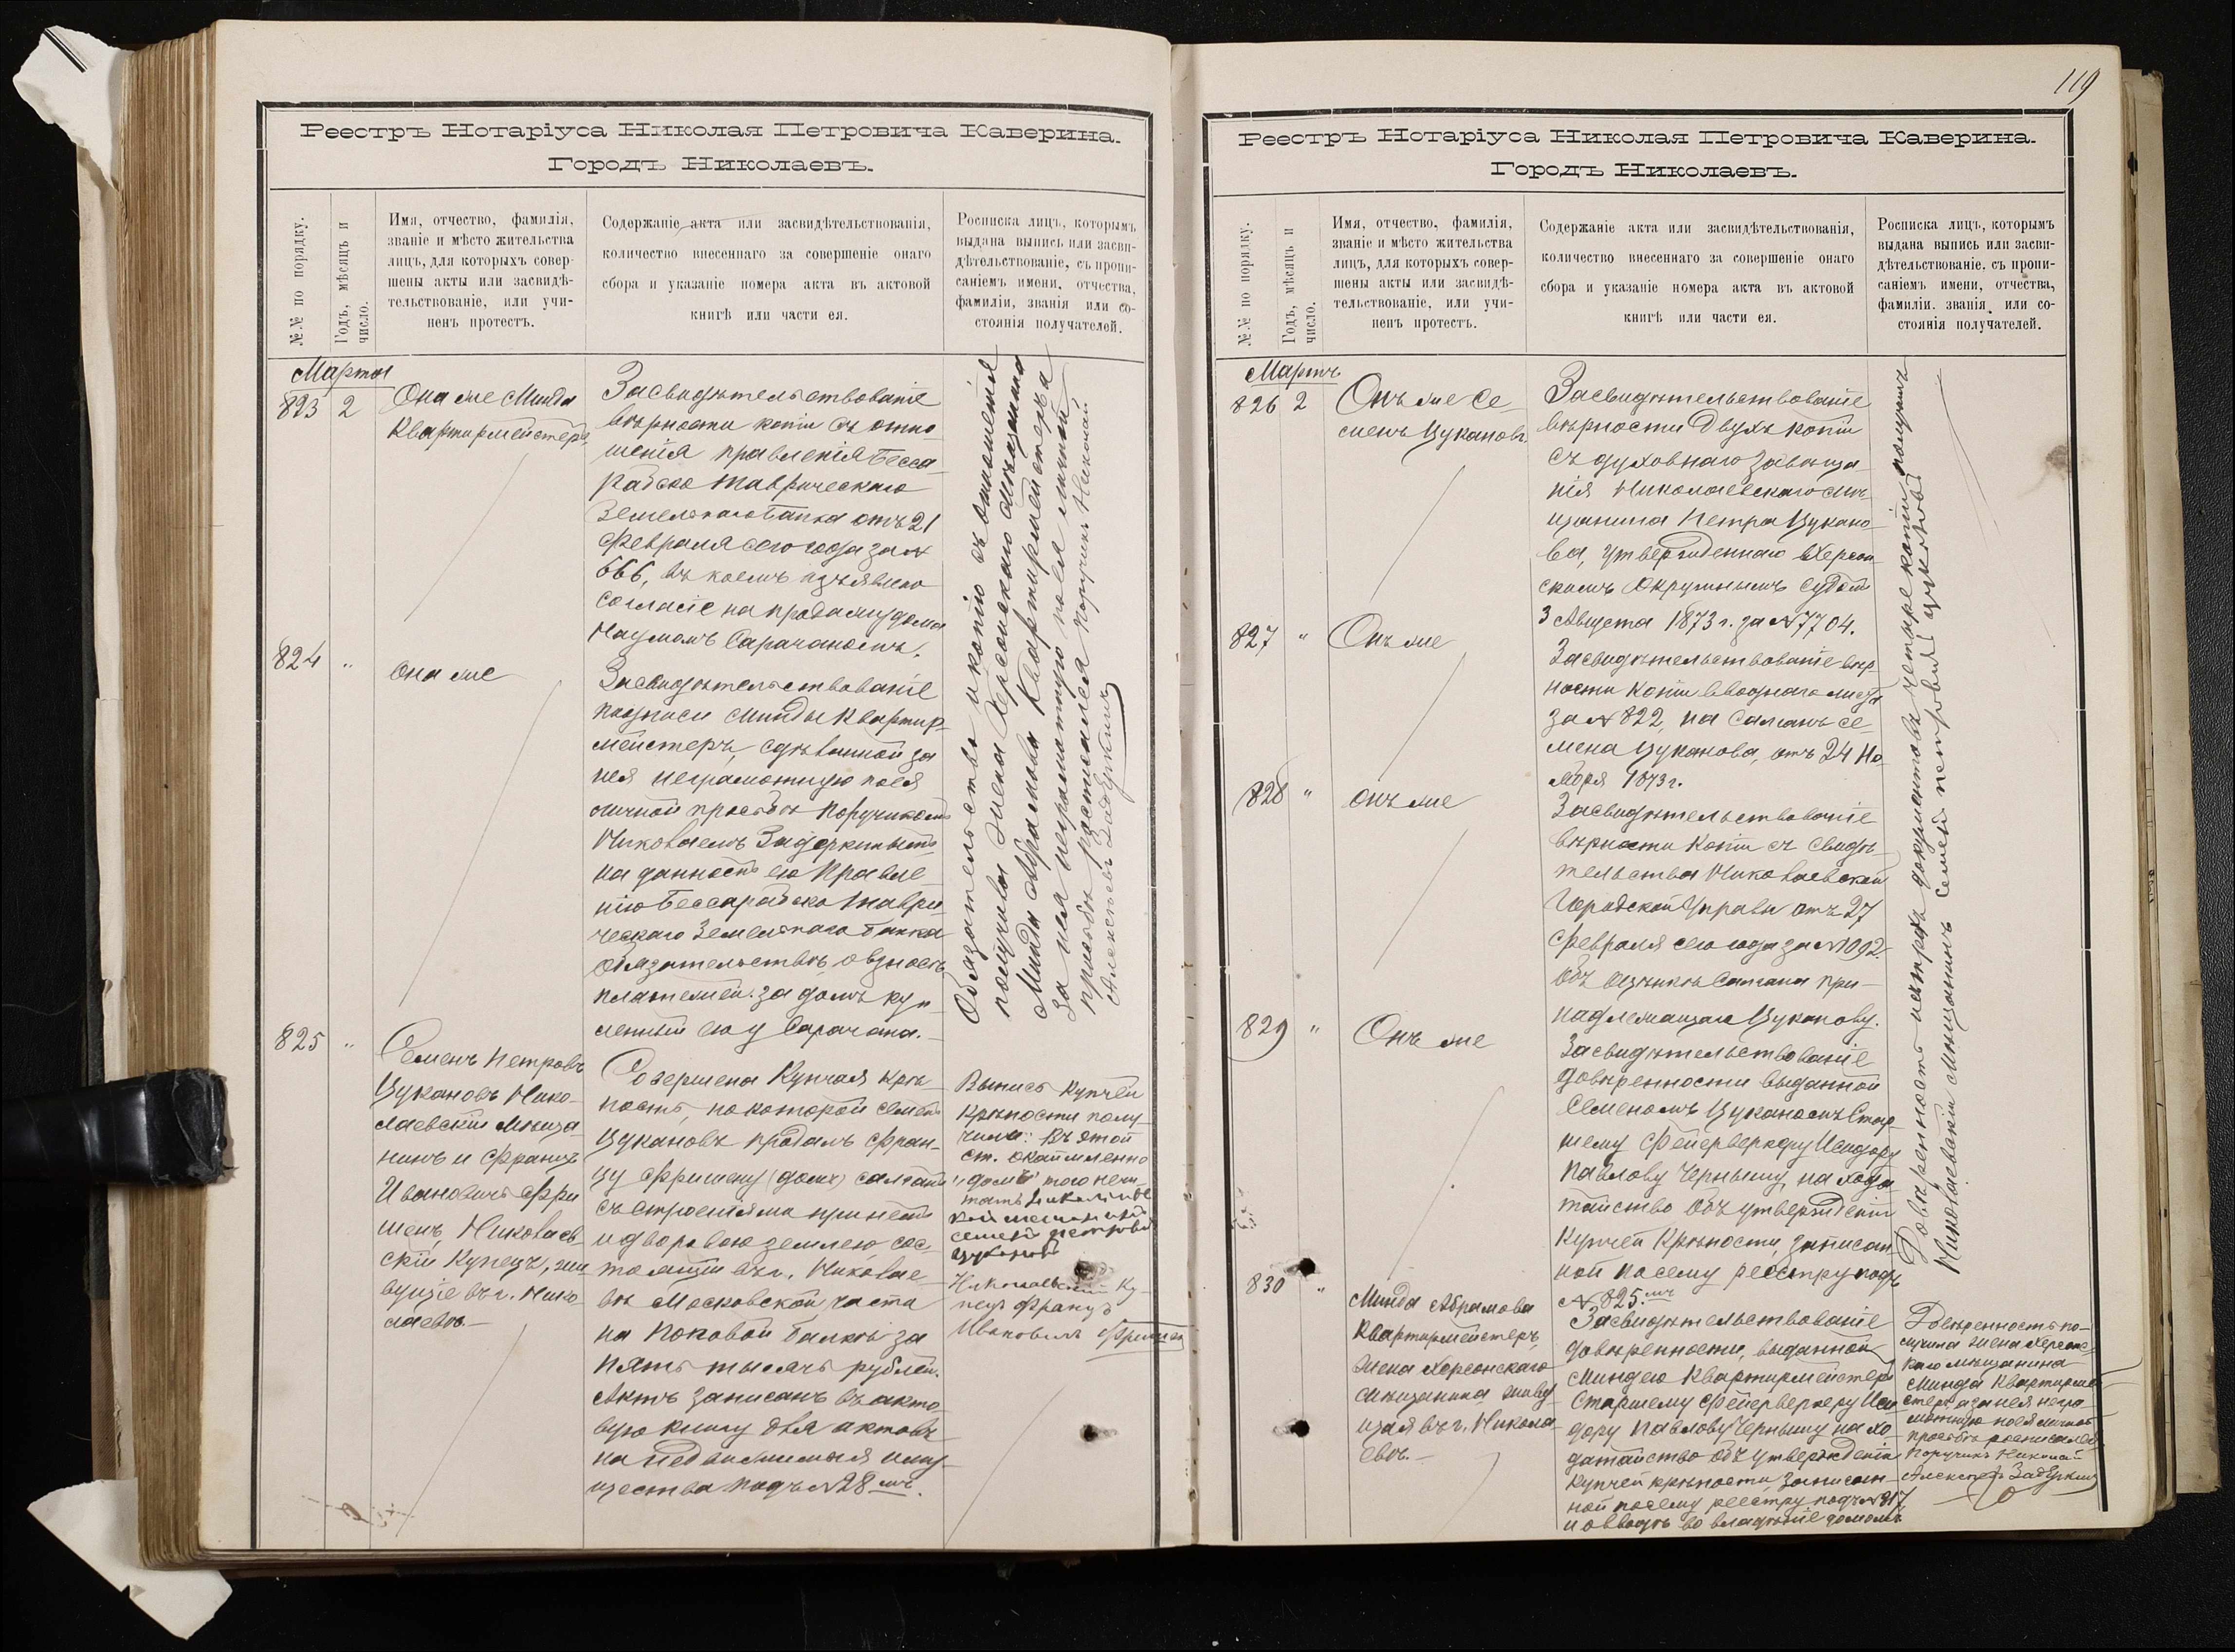 Реестръ Нотаріуса Николая Петровича Каверина.
Городъ Николаевъ.
№№ по порядку.
Годъ, мѣсяцъ и
число.
Имя, отчество, фамилія,
званіе и мѣсто жительства
лицъ, для которыхъ совер-
шены акты или засвидѣ-
тельствованіе, или учи-
ненъ протестъ.
Содержаніе акта или засвидѣтельствованія,
количество внесеннаго за совершеніе онаго
сбора и указаніе номера акта въ актовой
книгѣ или части ея.
Росписка лицъ, которымъ
выдана выпись или засви-
дѣтельствованіе, съ пропи-
саніемъ имени, отчества,
фамиліи, званія или со-
стоянія получателей.
Марта
823 2
Она же Минда
Квартирмейстеръ
Засвидѣтельствованіе
вѣрности копіи съ отно
шенія правленія Бесса
рабско Таврическаго
Земельнаго банка отъ 21
Февраля сего года за №
666, въ коемъ изъявлено
согласіе на продажу дома
Наумомъ Сарачаномъ.
824 "
Она же
Засвидѣтельствованіе
подписи Минды Квартир
мейстеръ, сдѣланной за
нея неграмотную по ея
личной просьбѣ Поручикомъ
Николаемъ Задеркинымъ
на данномъ ею Правле
нію Бессарабско Таври
ческаго Земельнаго банка
обязательствѣ, о взносѣ
платежей за домъ куп
ленный ею у Сарачана.
Обязательство и копію съ отношенія
получила жена Херсонскаго мѣщанина
Минда Абрамова Квартирмейстеръ а
за нея неграмотную по ея личной
просьбѣ росписался Поручикъ Николай
Алексѣевъ Задеркинъ
825 "
Семенъ Петровъ
Цукановъ Нико-
лаевскій Мѣща-
нинъ и Францъ
Ивановичъ Фри
шенъ, Николаев
скій Купецъ, жи
вущіе въ г. Нико
лаевѣ.
Совершена Купчая крѣ
пость, по которой Семенъ
Цукановъ продалъ Фран-
цу Фришену (домъ) салганъ
съ строеніями при немъ
и дворовою землею, сос-
тоящій въ г. Николае
вѣ Московской части
на Поповой балкѣ за
пять тысячъ рублей.
Актъ записанъ въ акто
вую книгу для актовъ
на недвижимыя иму
щества подъ № 28 мъ.
Выпись купчей
крѣпости полу
чили: Въ этой
ст. окаймленно
"домъ" того не чи
тать Николаевс
кій мещанинъ
семенъ петровъ
цукановъ
Николаевскій Ку-
пецъ Францъ
Ивановичъ Фришен
119
Реестръ Нотаріуса Николая Петровича Каверина.
Городъ Николаевъ.
№№ по порядку.
Годъ, мѣсяцъ и
число.
Имя, отчество, фамилія,
званіе и мѣсто жительства
лицъ, для которыхъ совер-
шены акты или засвидѣ-
тельствованіе, или учи-
ненъ протестъ.
Содержаніе акта или засвидѣтельствованія,
количество внесеннаго за совершеніе онаго
сбора и указаніе номера акта въ актовой
книгѣ или части ея.
Росписка лицъ, которымъ
выдана выпись или засви-
дѣтельствованіе, съ пропи-
саніемъ имени, отчества,
фамиліи, званія или со-
стоянія получателей.
Мартъ
826 2
Онъ же Се
менъ Цукановъ
Засвидѣтельствованіе
вѣрности двухъ копій
съ духовнаго завѣща
нія Николаевскаго мѣ
щанина Петра Цукано
ва, утвержденнаго в Херсон
скомъ Окружнымъ Судомъ
3 Августа 1873 г. за № 7704.
827 "
Онъ же
Засвидѣтельствованіе вѣр
ности копіи вводнаго листа
за № 822, на салганъ Се
мена Цуканова, отъ 24 Но
ября 1873 г.
828 "
Онъ же
Засвидѣтельствованіе
вѣрности копіи съ свидѣ
тельства Николаевской
Городской Управы отъ 27
Февраля сего года за № 1092
объ оцѣнкѣ салгана при-
надлежащаго Цуканову.
829 "
Онъ же
Засвидѣтельствованіе
довѣренности выданной
Семеномъ Цукановымъ Стар
шему Фейерверкеру Исидору
Павлову Чернышу, на хода
тайство объ утвержденіи
Купчей Крѣпости, записан
ной по сему реестру подъ
№ 825 мъ
Довѣренность четыре копіи получилъ
Николаевскій Мѣщанинъ семенъ петровъ цукановъ
830 "
Минда Абрамова
Квартирмейстеръ,
жена Херсонскаго
Мѣщанина живу
щая въ г. Никола
евѣ.
Засвидѣтельствованіе
довѣренности, выданной
Миндою Квартирмейстеръ
Старшему Фейерверкеру Иси
дору Павлову Чернышу на хо-
датайство объ утвержденіи
Купчей крѣпости, записан-
ной по сему реестру подъ № 817
и о вводѣ во владѣніе домомъ
Довѣренность по-
лучила жена Херсонс-
каго мѣщанина
Минда Квартирмей
стеръ а за нея негра
мотную по ея личной
просьбѣ росписался
Поручикъ Николай
Алексѣевъ Задеркинъ